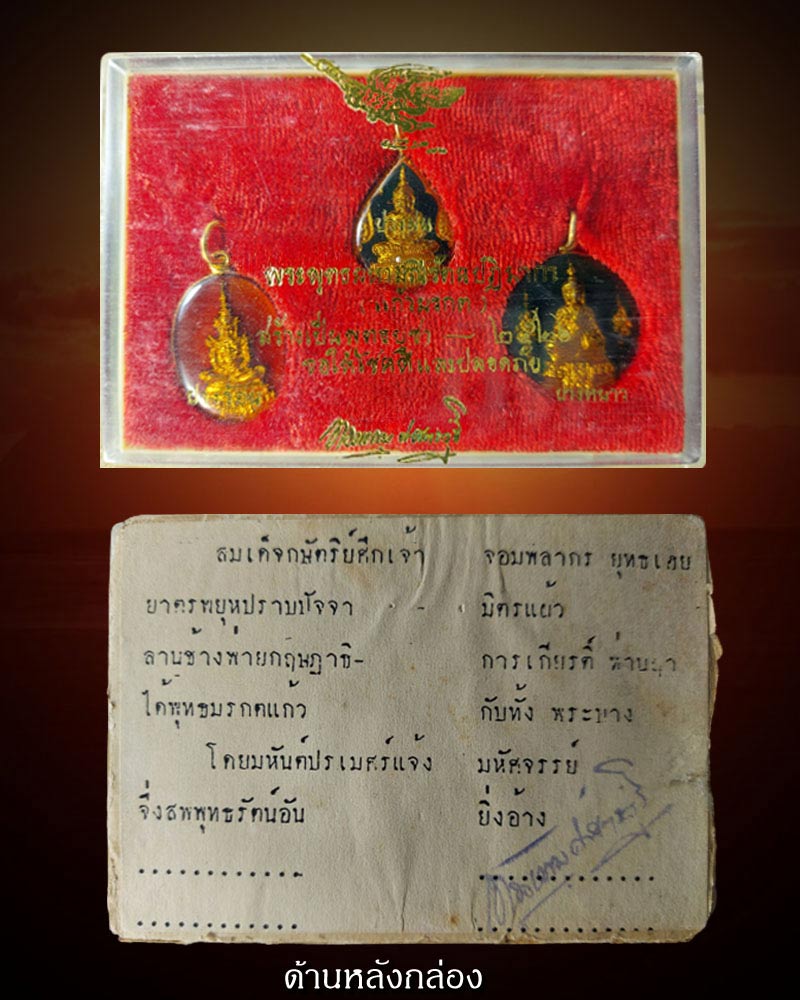 พระพุทธ
(แก้วมรกต)
สร้างเป็นพุทธบูชา — ๒๕๒๖
ขอให้โชคดีแคล้วปลอดภัย
สมเด็จกษัตริย์ศึกเจ้า จอมพลากร ยุทธเฮย
ยาตรพยุหปราบปัจจา - - มิตรแผ้ว
ลานช้างพ่ายกฤษฎาธิ- การเกียรติ์ ท่านนา
ได้พุทธมรกตแก้ว กับทั้ง พระบาง
โดยมหันต์ปรเมศร์แจ้ง มหัศจรรย์
จึ่งสพพุทธรัตน์อัน ยิ่งอ้าง
............ .............
............ .............
ด้านหลังกล่อง